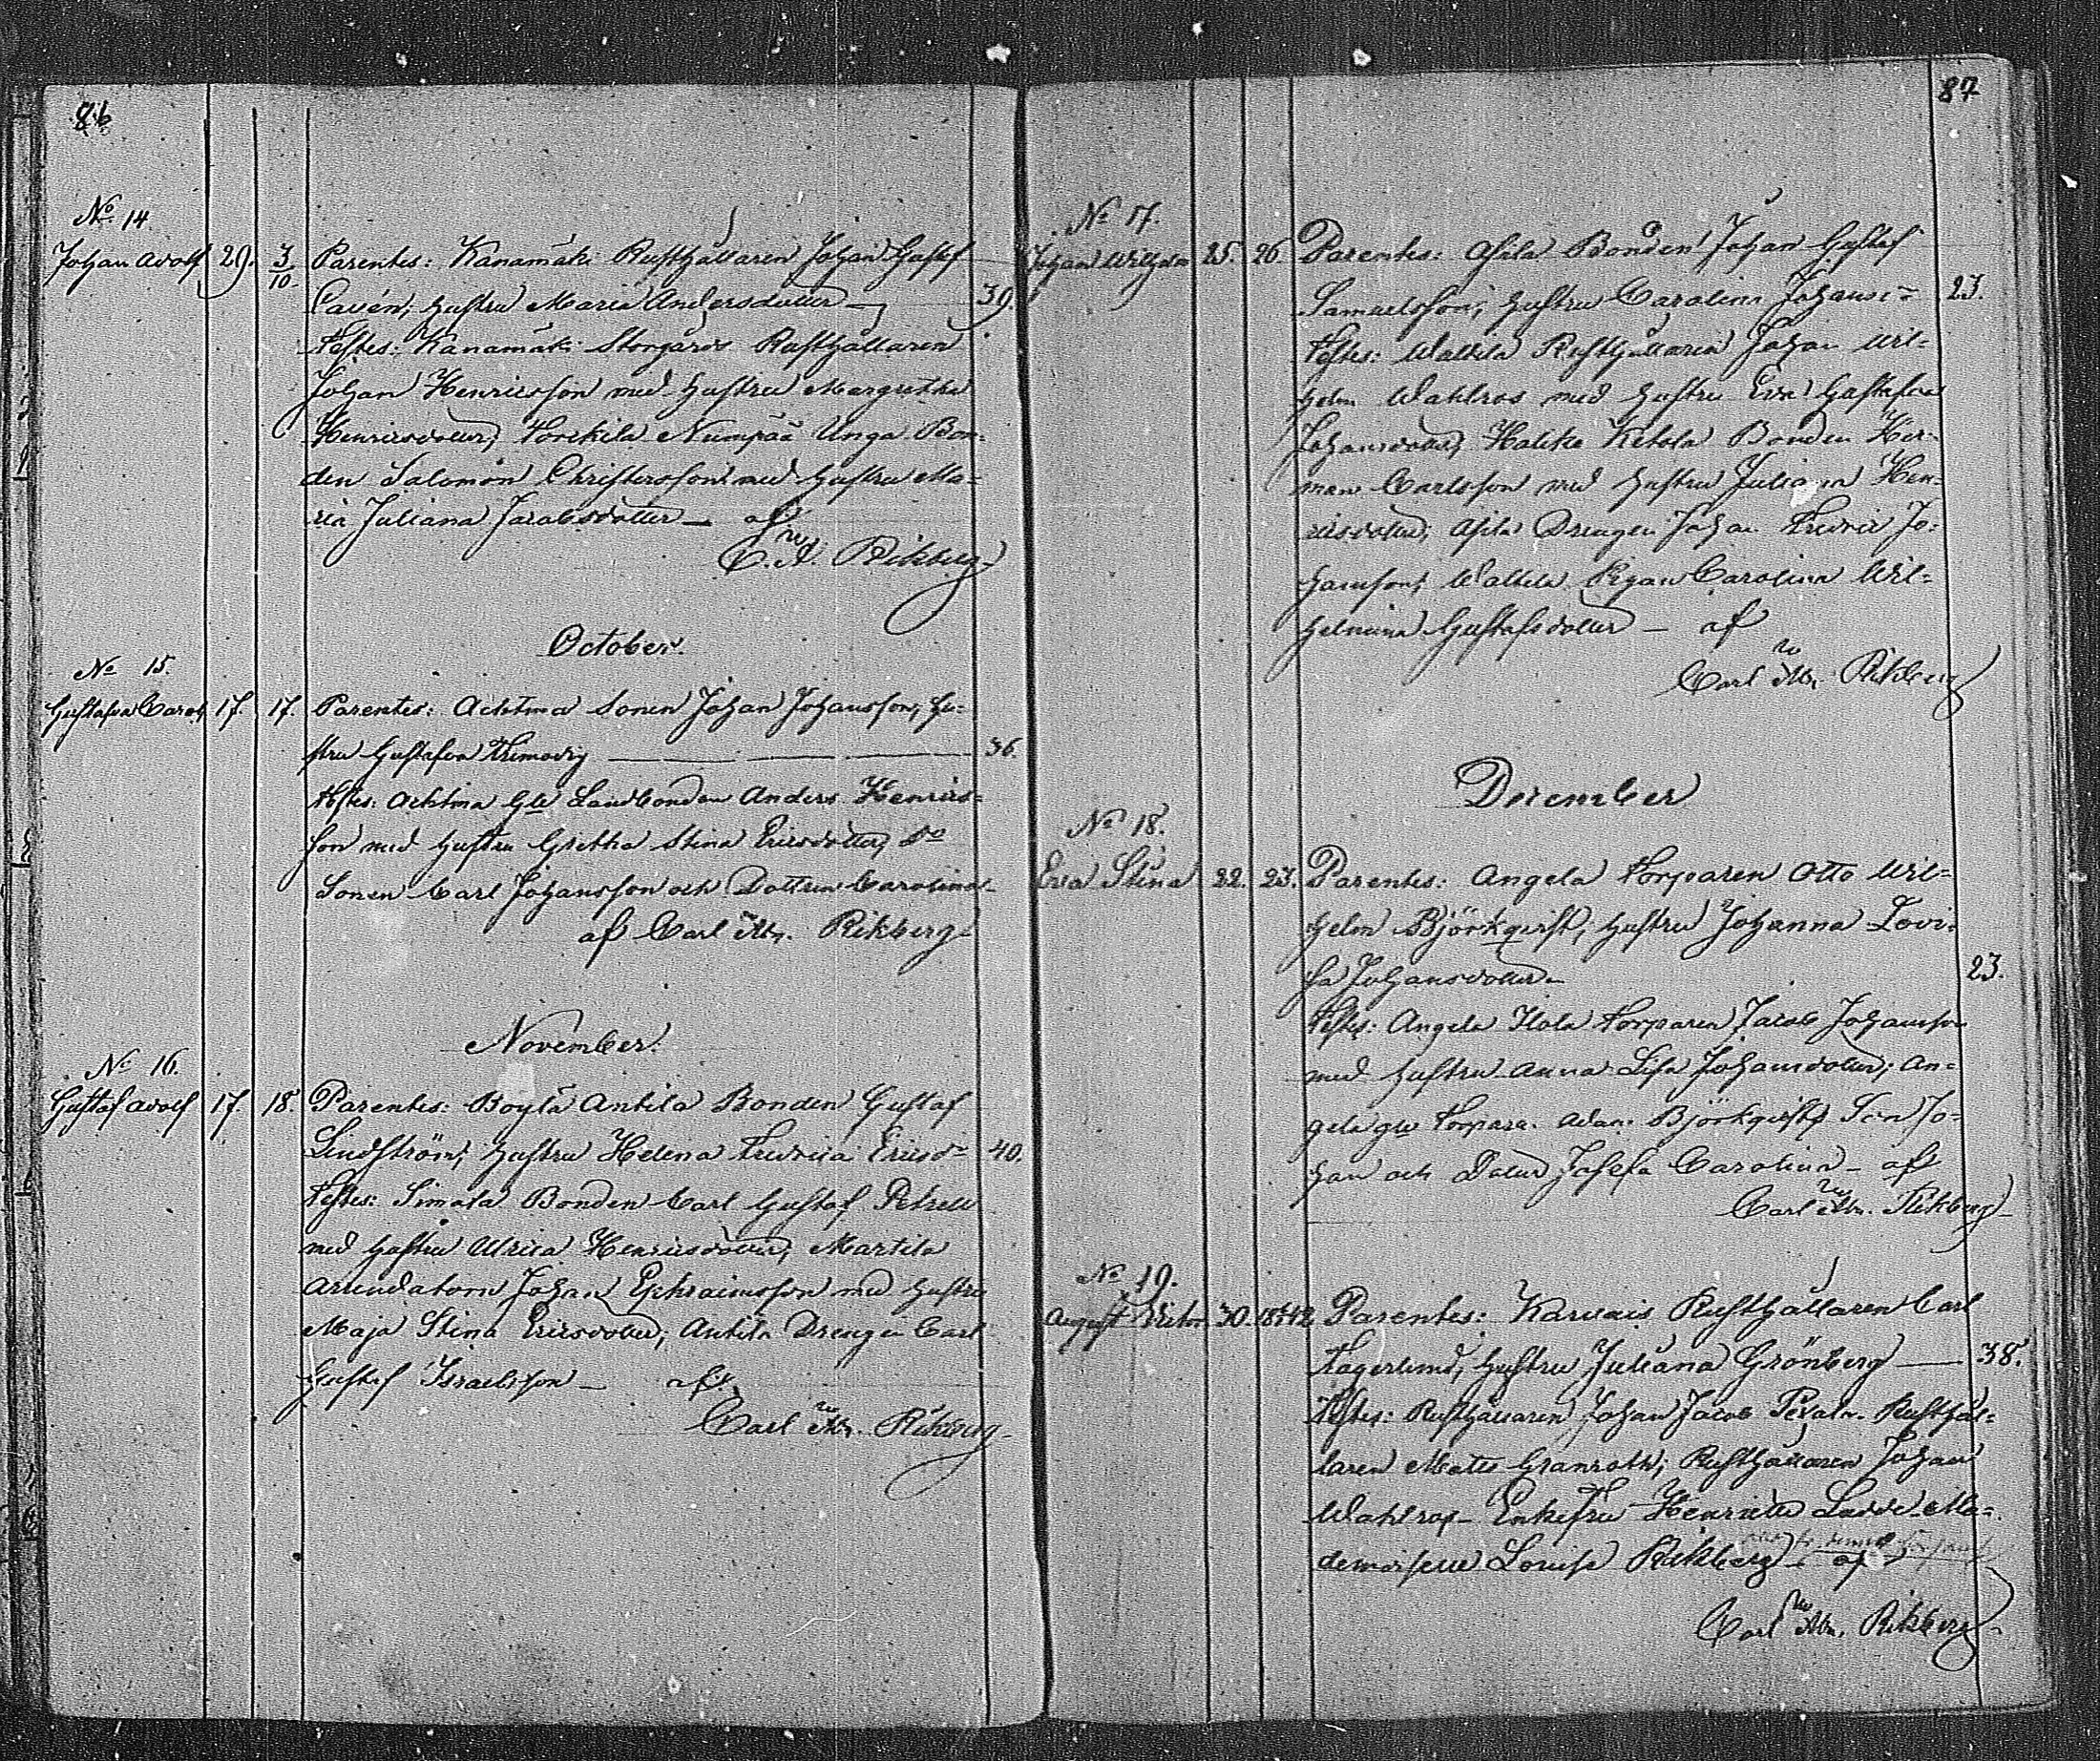 86
No 14.
Johan Adolf 29. 3/10. Parentes: Kanamäki Rusthållaren Johan Gustaf
Cavén, hustru Maria Andersdotter — 39.
Testes: Kanamäki Storgårds Rusthållaren
Johan Henricsson med hustru Margretha
Henricsdotter, Torkila Numpää Unga Bon-
den Salomon Christersson med hustru Ma-
ria Juliana Jacobsdotter — af
C. A. Rikberg
October.
No 15.
Gustafva Carol. 17. 17. Parentes: Achtma Sonen Johan Johansson, hu-
stru Gustafva — 36.
Testes: Achtma Gle Landbonden Anders Henrics-
son med hustru Gretha Stina Ericsdotter, Do
Sonen Carl Johansson och Dottren Carolina
af Carl Abr. Rikberg
November.
No 16.
Gustaf Adolf 17. 18. Parentes: Boylä Antila Bonden Gustaf
Lindström, hustru Helena Fredrica Ericsdr 40.
Testes: Simala Bonden Carl Gustaf Petrell
med hustru Ulrica Henricsdotter, Martila
Arrendatorn Johan Ephraimsson med hustru
Maja Stina Ericsdotter, Antila Drengen Carl
Gustaf Israelsson — af
Carl Abr. Rikberg
87
No 17.
Johan Wilhelm 25. 26 Parentes: Asila Bonden Johan Gustaf
Samuelsson, hustru Carolina Johansdr 23.
Testes: Waltila Rusthållaren Johan Wil-
helm Wahlros med hustru Eva Gustafva
Johansdotter, Haliko Ketola Bonden Her-
man Carlsson med hustru Juliana Hen-
ricsdotter, Asila Drengen Johan Fredric Jo-
hansson, Waltila Pigan Carolina Wil-
helmina Gustafsdotter — af
Carl Abr. Rikberg
December
No 18.
Eva Stina 22. 23. Parentes: Angela Torparen Otto Wil-
helm Björkqvist, hustru Johanna Lovi-
sa Johansdotter 23.
Testes: Angela Torparen Jacob Johansson
med hustru Anna Lisa Johansdotter, An-
gela gle Torpare. Adam Björkqvists Son Jo-
han och Dotter Josefa Carolina — af
Carl Abr. Rikberg
No 19.
August Victor 30. Parentes: Karvais Rusthållaren Carl
Fagerlund, hustru Juliana Grönberg — 38.
Testes: Rusthållaren Johan Jacob Rusthål-
laren Mats Granroth, Rusthållaren Johan
Wahlros Enkefru Henrietta Ma-
demoiselle Louise Rikberg — af
Carl Abr. Rikberg